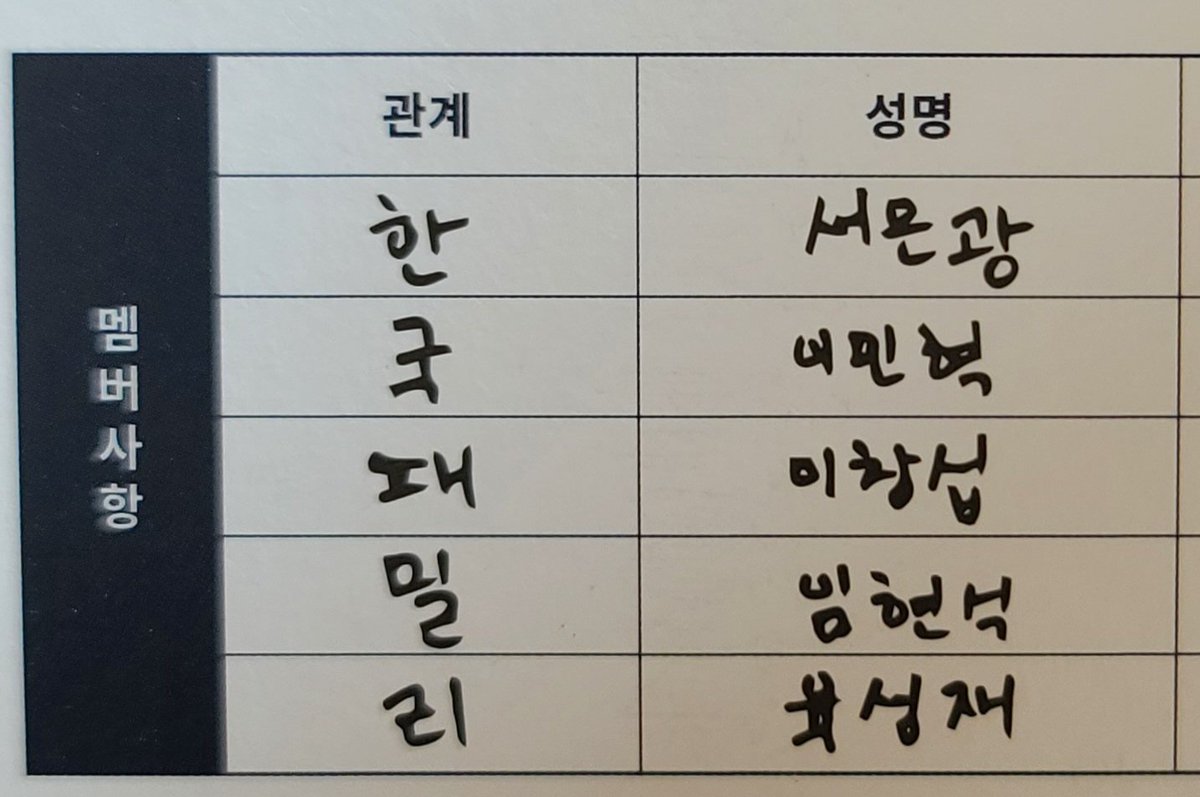 멤버사항
관계 성명
한 서은광
국 이민혁
패 이창섭
밀 임현식
리 육성재